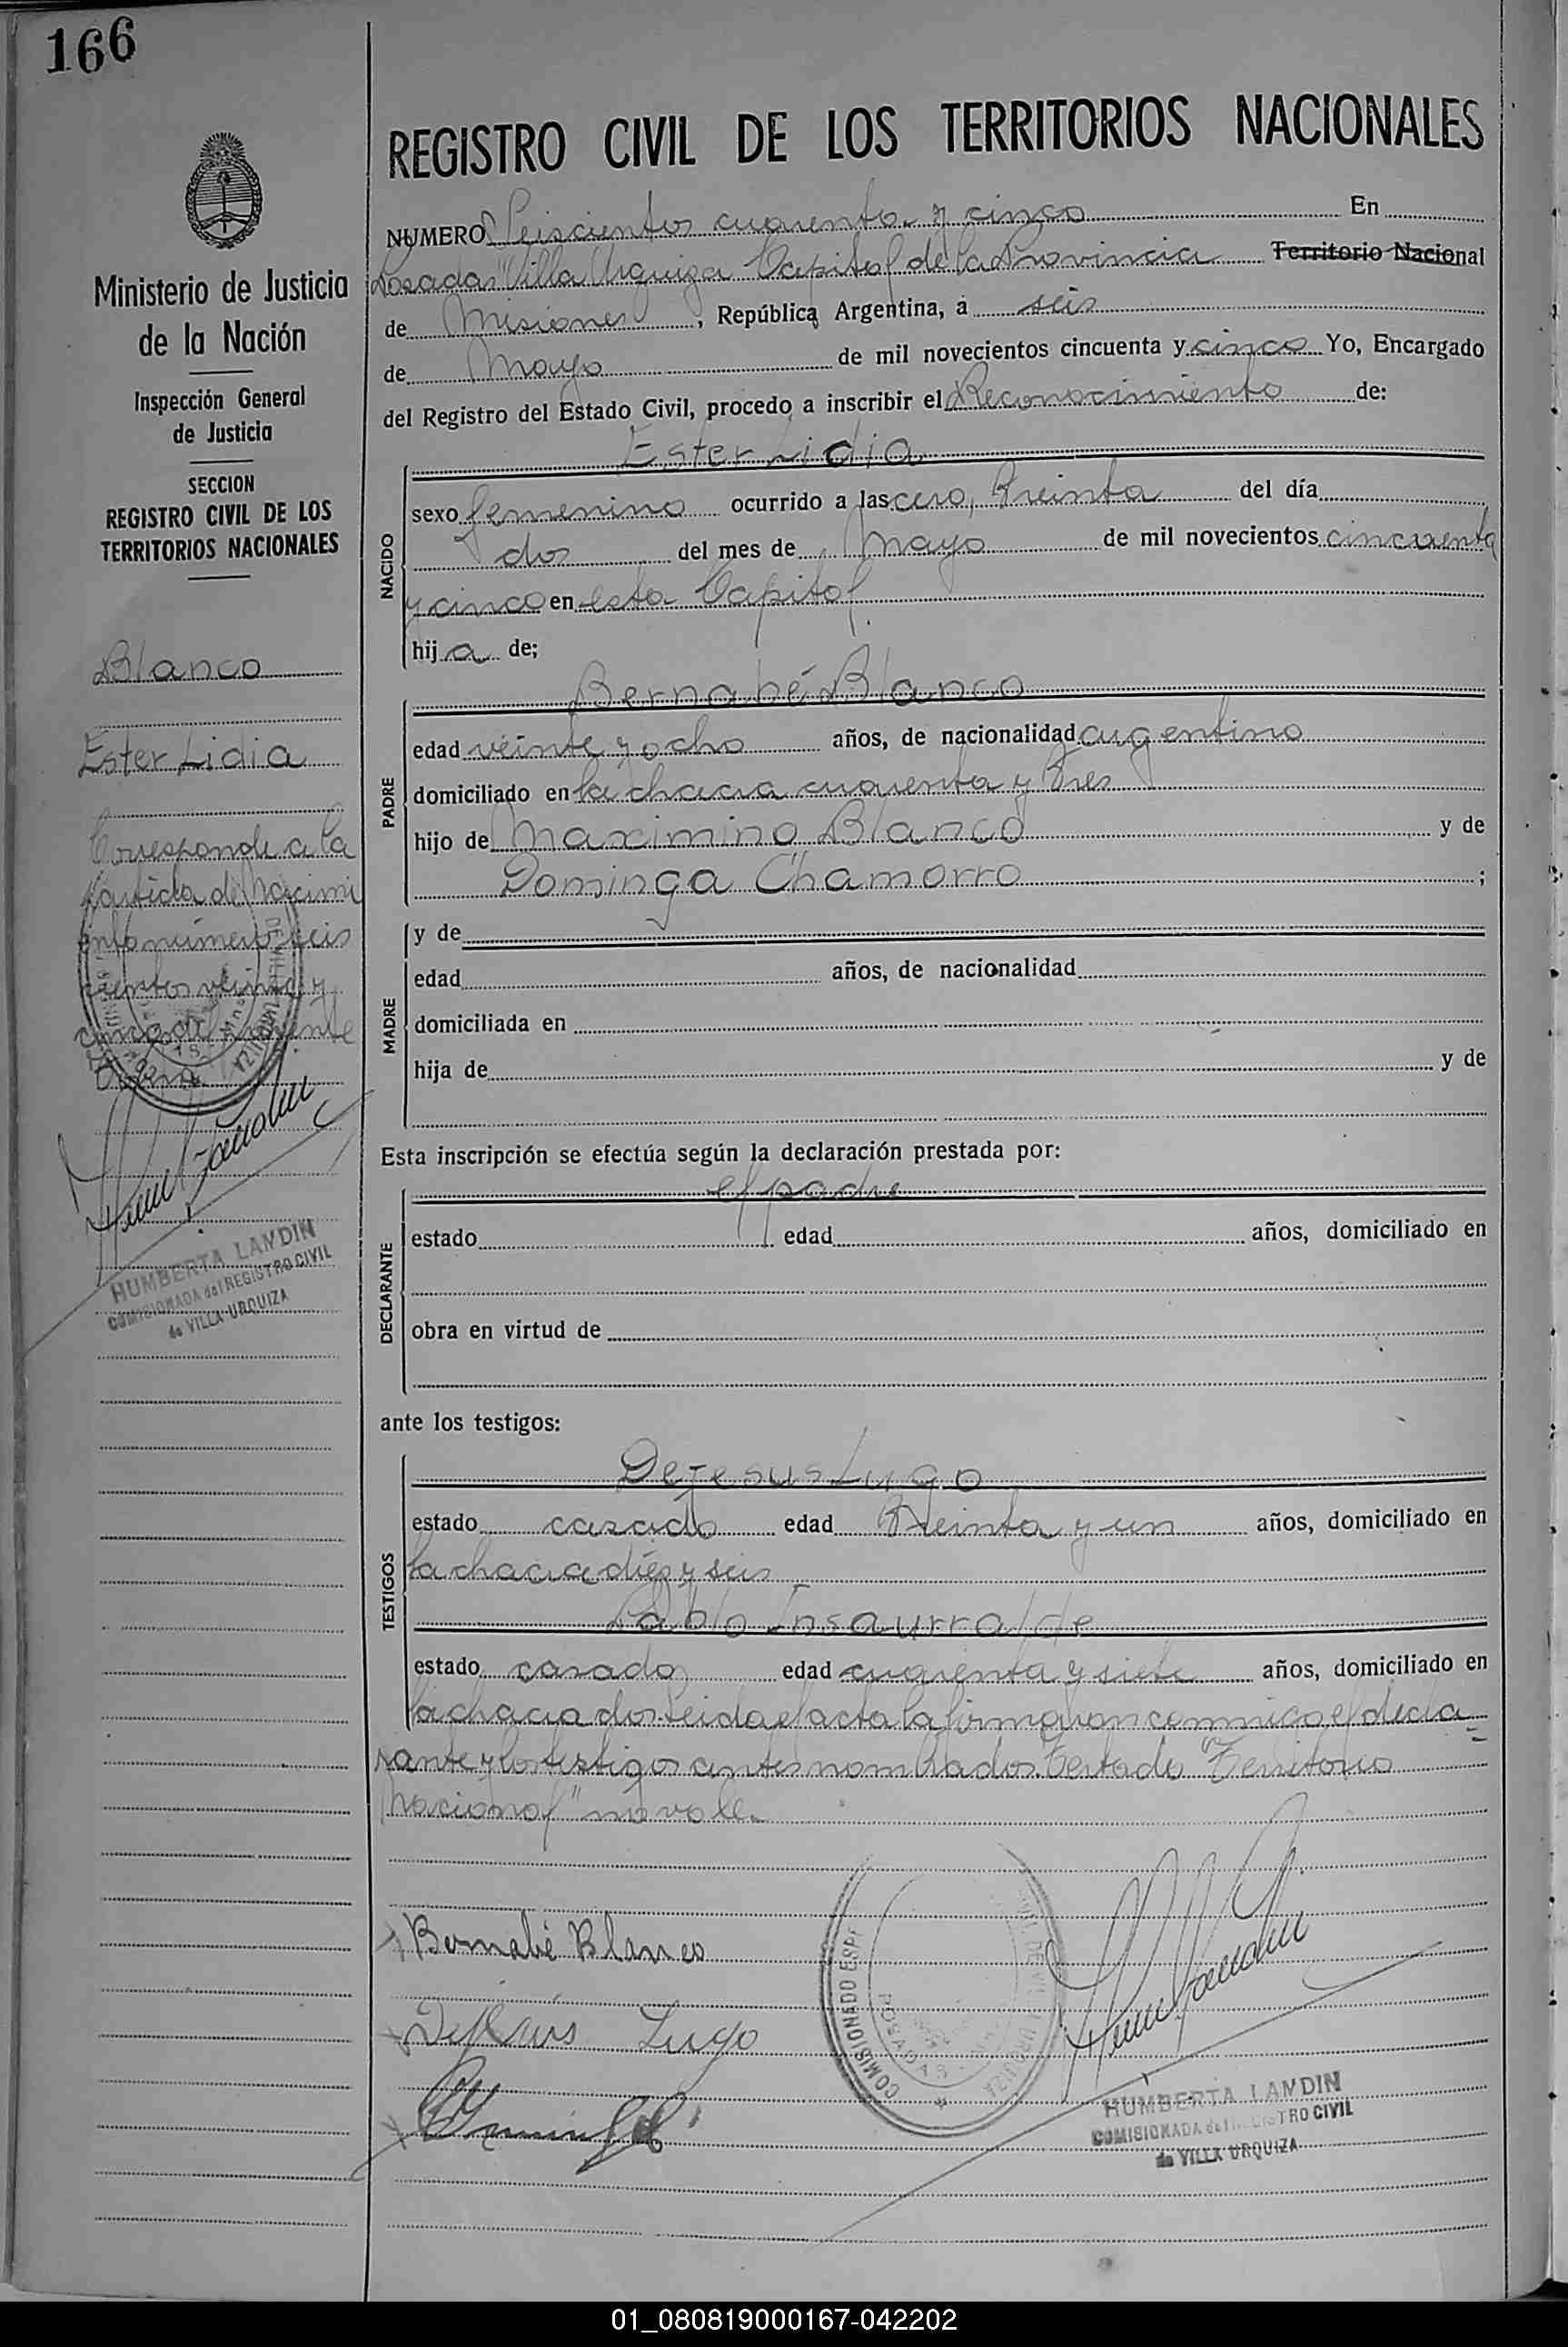 166
REGISTRO CIVIL DE LOS TERRITORIOS NACIONALES
NUMERO Seiscientos cuarenta y cinco En
Posadas "Villa Urquiza" Capital de la Provincia Territorio Nacional
de Misiones, República Argentina, a seis
de Mayo de mil novecientos cincuenta y cinco Yo, Encargado
del Registro del Estado Civil, procedo a inscribir el Reconocimiento de:
NACIDO
Ester Lidia
sexo femenino ocurrido a las cero, treinta del día
dos del mes de Mayo de mil novecientos cincuenta
y cinco en esta Capital.
hija de;
PADRE
Bernabé Blanco
edad veinte y ocho años, de nacionalidad argentino
domiciliado en la chacra cuarenta y tres
hijo de Maximino Blanco y de
Dominga Chamorro ;
MADRE
y de
edad años, de nacionalidad
domiciliada en
hija de y de
Esta inscripción se efectúa según la declaración prestada por:
DECLARANTE
el padre
estado edad años, domiciliado en
obra en virtud de
ante los testigos:
TESTIGOS
Dejesus Lugo
estado casado edad treinta y un años, domiciliado en
la chacra diez y seis
Pablo Insaurralde
estado casado edad cuarenta y siete años, domiciliado en
la chacra dos. Leida el acta la firmaron conmigo el decla
rante y los testigos antes nombrados. Testado "Territorio
Nacional" no vale.
Bernabé Blanco
Dejesús Lugo
COMISIONADO ESP
POSADAS
URQUIZA
HUMBERTA LANDIN
COMISIONADA del REGISTRO CIVIL
de VILLA URQUIZA
Ministerio de Justicia
de la Nación
Inspección General
de Justicia
SECCION
REGISTRO CIVIL DE LOS
TERRITORIOS NACIONALES
Blanco
Ester Lidia
Corresponde a la
partida de Nacimi
ento número seis
cientos veinte y
cinco del presente
tomo
HUMBERTA LANDIN
COMISIONADA del REGISTRO CIVIL
de VILLA URQUIZA
01_080819000167-042202